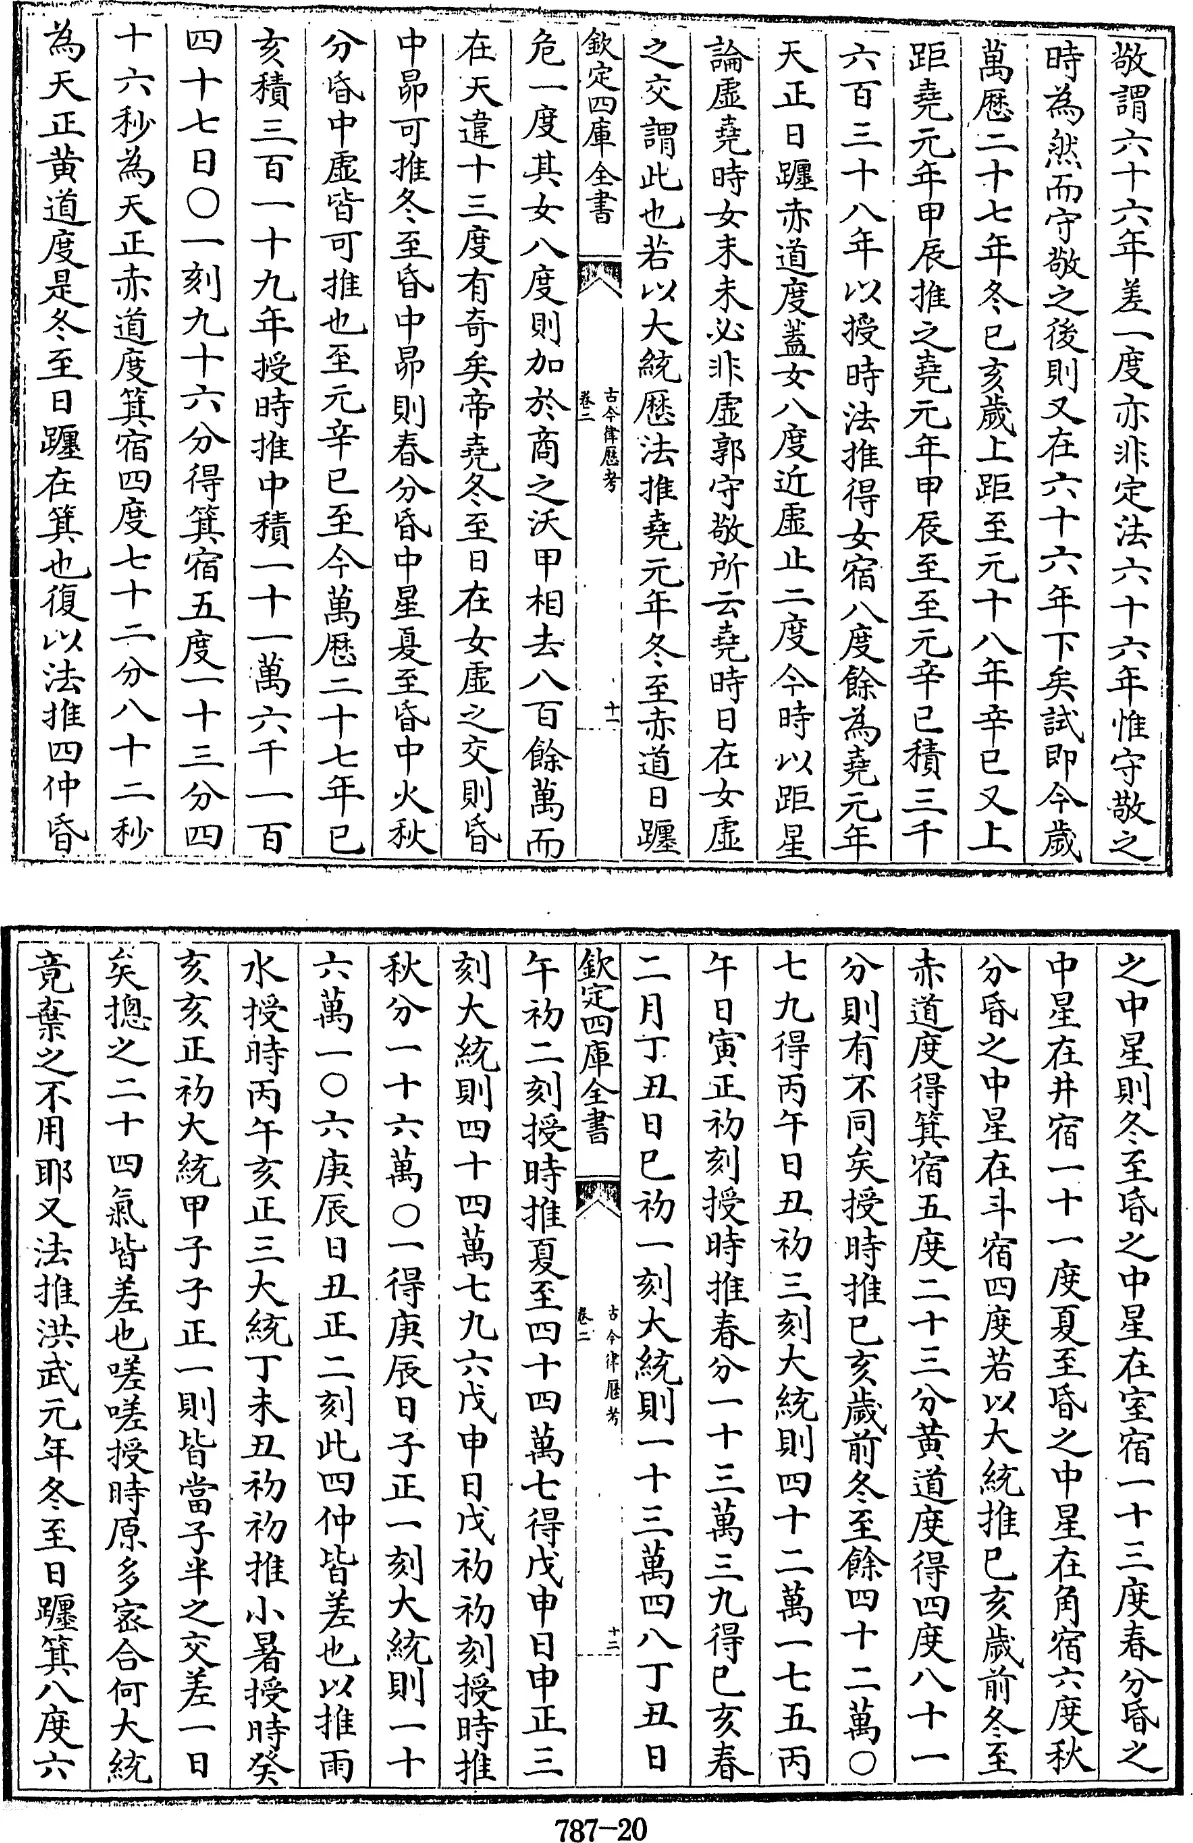 敬謂六十六年差一度亦非定法六十六年惟守敬之
時為然而守敬之後則又在六十六年下矣試即今歲
萬曆二十七年冬己亥歲上距至元十八年辛巳又上
距堯元年甲辰推之堯元年甲辰至至元辛巳積三千
六百三十八年以授時法推得女宿八度餘為堯元年
天正日躔赤道度蓋女八度近虛止二度今時以距星
論虛堯時女末未必非虛郭守敬所云堯時日在女虛
之交謂此也若以大統歷法推堯元年冬至赤道日躔
欽定四庫全書
古今律歷考
卷二
十一
危一度其女八度則加於商之沃甲相去八百餘萬而
在天違十三度有奇矣帝堯冬至日在女虛之交則昏
中昴可推冬至昏中昴則春分昏中星夏至昏中火秋
分昏中虛皆可推也至元辛巳至今萬歷二十七年已
亥積三百一十九年授時推中積一十一萬六千一百
四十七日〇一刻九十六分得箕宿五度一十三分四
十六秒為天正赤道度箕宿四度七十二分八十二秒
為天正黄道度是冬至日躔在箕也復以法推四仲昏
之中星則冬至昏之中星在室宿一十三度春分昏之
中星在井宿一十一度夏至昏之中星在角宿六度秋
分昏之中星在斗宿四度若以大統推已亥歲前冬至
赤道度得箕宿五度二十三分黄道度得四度八十一
分則有不同矣授時推已亥歲前冬至餘四十二萬〇
七九得丙午日丑初三刻大統則四十二萬一七五丙
午日寅正初刻授時推春分一十三萬三九得已亥春
二月丁丑日巳初一刻大統則一十三萬四八丁丑日
欽定四庫全書
古今律歷考
卷二
十二
午初二刻授時推夏至四十四萬七得戊申日申正三
刻大統則四十四萬七九六戊申日戌初初刻授時推
秋分一十六萬〇一得庚辰日子正一刻大統則一十
六萬一〇六庚辰日丑正二刻此四仲皆差也以推雨
水授時丙午亥正三大統丁未丑初初推小暑授時癸
亥亥正初大統甲子子正一則皆當子半之交差一日
矣摠之二十四氣皆差也嗟嗟授時原多宻合何大統
竟棄之不用耶又法推洪武元年冬至日躔箕八度六
787-20